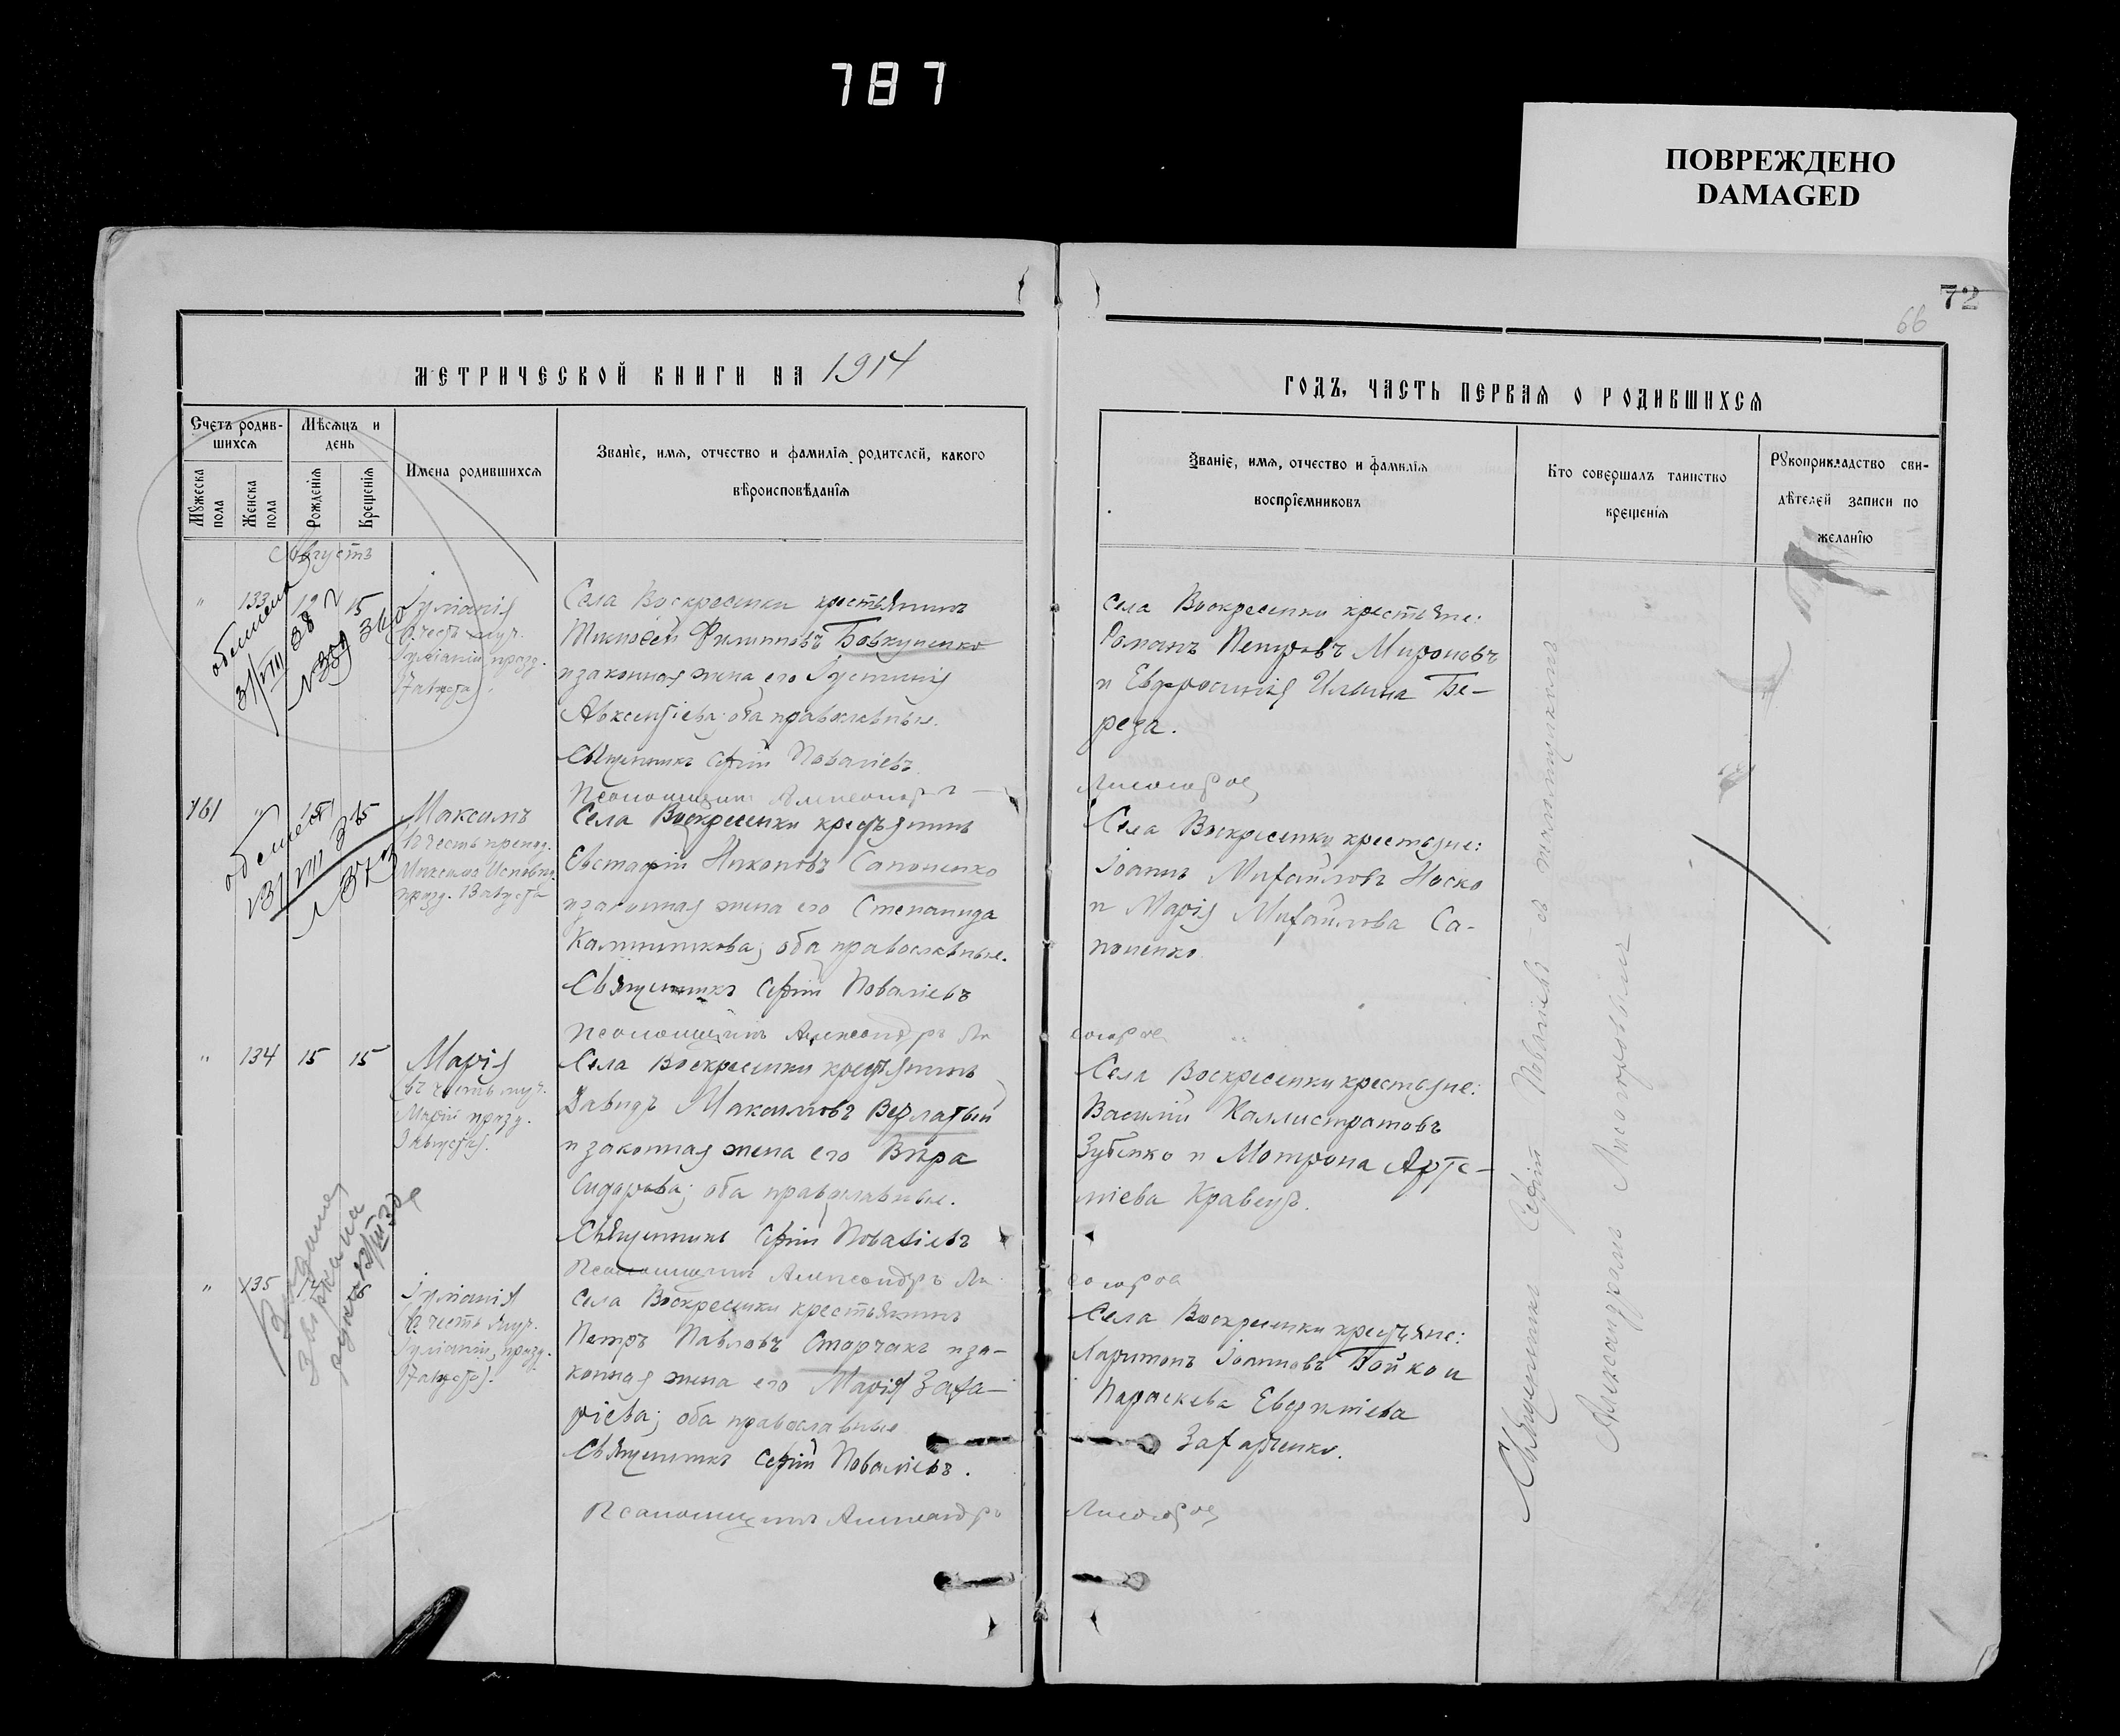 787
ПОВРЕЖДЕНО
DAMAGED
72
66
МЕТРИЧЕСКОЙ КНИГИ НА 1914
ГОДЪ, ЧАСТЬ ПЕРВАЯ О РОДИВШИХСЯ
Счетъ родив-
шихся
Мѣсяцъ и
день
Мужеска
пола
Женска
пола
Рожденія
Крещенія
Имена родившихся
Званіе, имя, отчество и фамилія родителей, какого
вѣроисповѣданія
Званіе, имя, отчество и фамилія
воспріемниковъ
Кто совершалъ таинство
крещенія
Рукоприкладство сви-
дѣтелей записи по
желанію
Августъ
" 133 12 15 Іуліанія
Въ честь муч.
Іуліаніи празд.
17 августа.
Села Воскресенки крестьянинъ
Тимоѳей Филипповъ Бовкуненко
и законная жена его Іустинія
Авксентіева; оба православные.
Священникъ Сергій Поваліевъ
Псаломщикъ Александръ
Села Воскресенки крестьяне:
Романъ Петровъ Мироновъ
и Евфросинія Ильина Бе-
реза.
161 " 15 Максимъ
Въ честь препод.
Максима Исповѣд.
празд. 13 августа
Села Воскресенки крестьянинъ
Евстафій Никоновъ Сапоненко
и законная жена его Степанида
Каллиникова; оба православные.
Священникъ Сергій Поваліевъ
Псаломщикъ Александръ Ли
согоров
Села Воскресенки крестьяне:
Іоаннъ Михайловъ Носко
и Марія Михайлова Са-
поненко.
" 134 15 15 Марія
Въ честь муч.
Маріи празд.
9 августа.
Села Воскресенки крестьянинъ
Давидъ Максимовъ Верлатый
и законная жена его Вѣра
Сидорова; оба православные.
Священникъ Сергій Поваліевъ
Псаломщикъ Александръ Ли
согоров
Села Воскресенки крестьяне:
Василій Каллистратовъ
Зубенко и Мотрона Арте-
міева Кравецъ.
" 135 Іуліанія
Въ честь муч.
Іуліаніи, празд.
17 августа.
Села Воскресенки крестьянинъ
Петръ Павловъ Сторчакъ и за-
конная жена его Марія Заха-
ріева; оба православные
Священникъ Сергій Поваліевъ.
Псаломщикъ Александръ
Села Воскресенки крестьяне:
Харитонъ Іоанновъ Бойко и
Параскева Евфиміева
Захарченко.
Священникъ Сергій Поваліевъ съ псаломщикомъ
Александромъ Лисогоровымъ